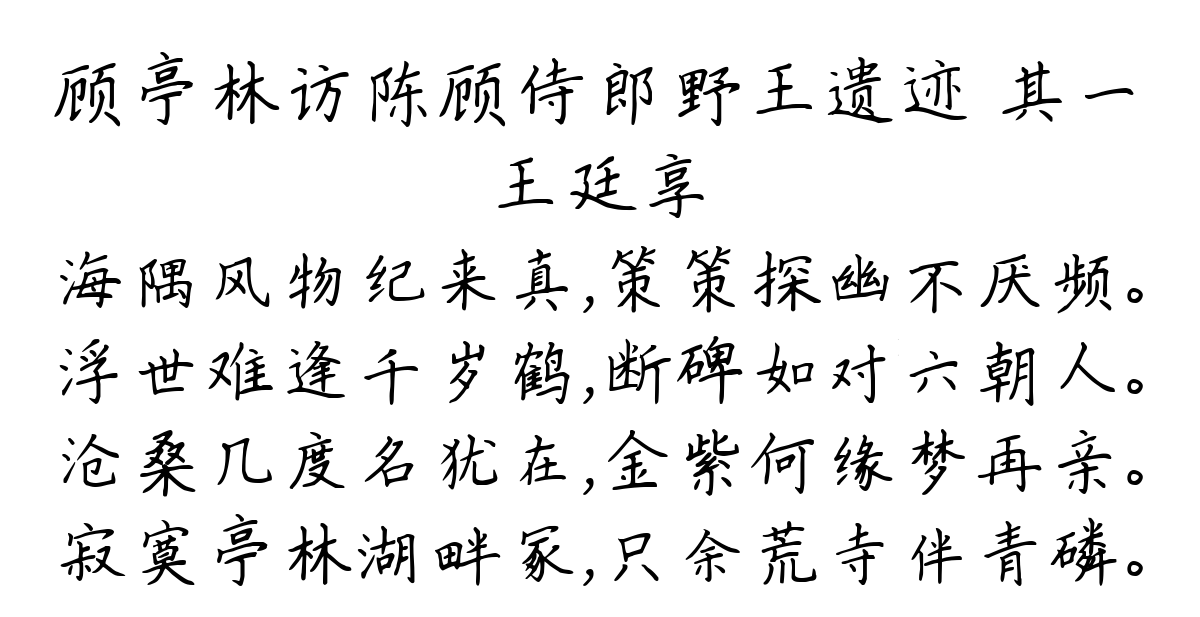 顾亭林访陈顾侍郎野王遗迹 其一
王廷享
海隅风物纪来真,策策探幽不厌频。
浮世难逢千岁鹤,断碑如对六朝人。
沧桑几度名犹在,金紫何缘梦再亲。
寂寞亭林湖畔冢,只余荒寺伴青磷。